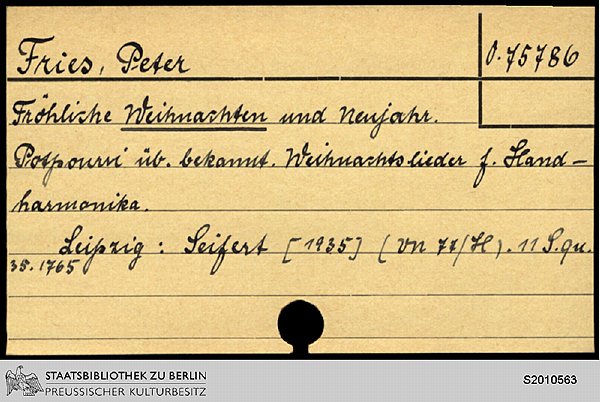 Fries, Peter
O. 75786
Fröhliche Weihnachten und Neujahr.
Potpourri üb. bekannt. Weihnachtslieder f. Hand-
harmonika.
Leipzig: Seifert [1935] (VN 77/H). 11 S. qu.
35.1765
STAATSBIBLIOTHEK ZU BERLIN
PREUSSISCHER KULTURBESITZ
S2010563